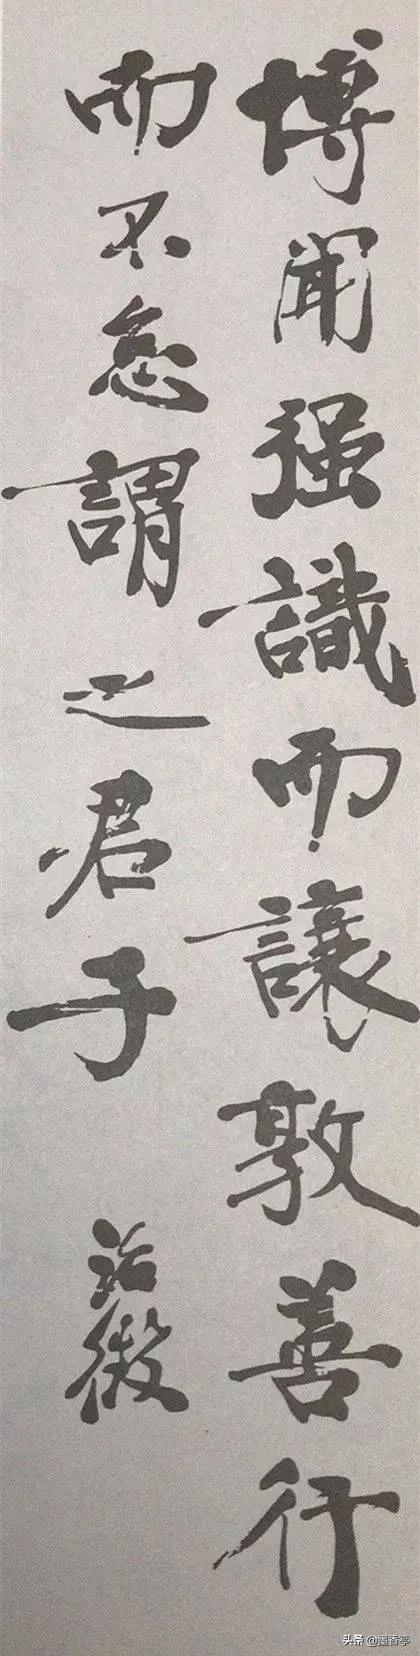 博聞强識而讓敦善行
而不怠謂之君子
治薇
头条 @墨香亭